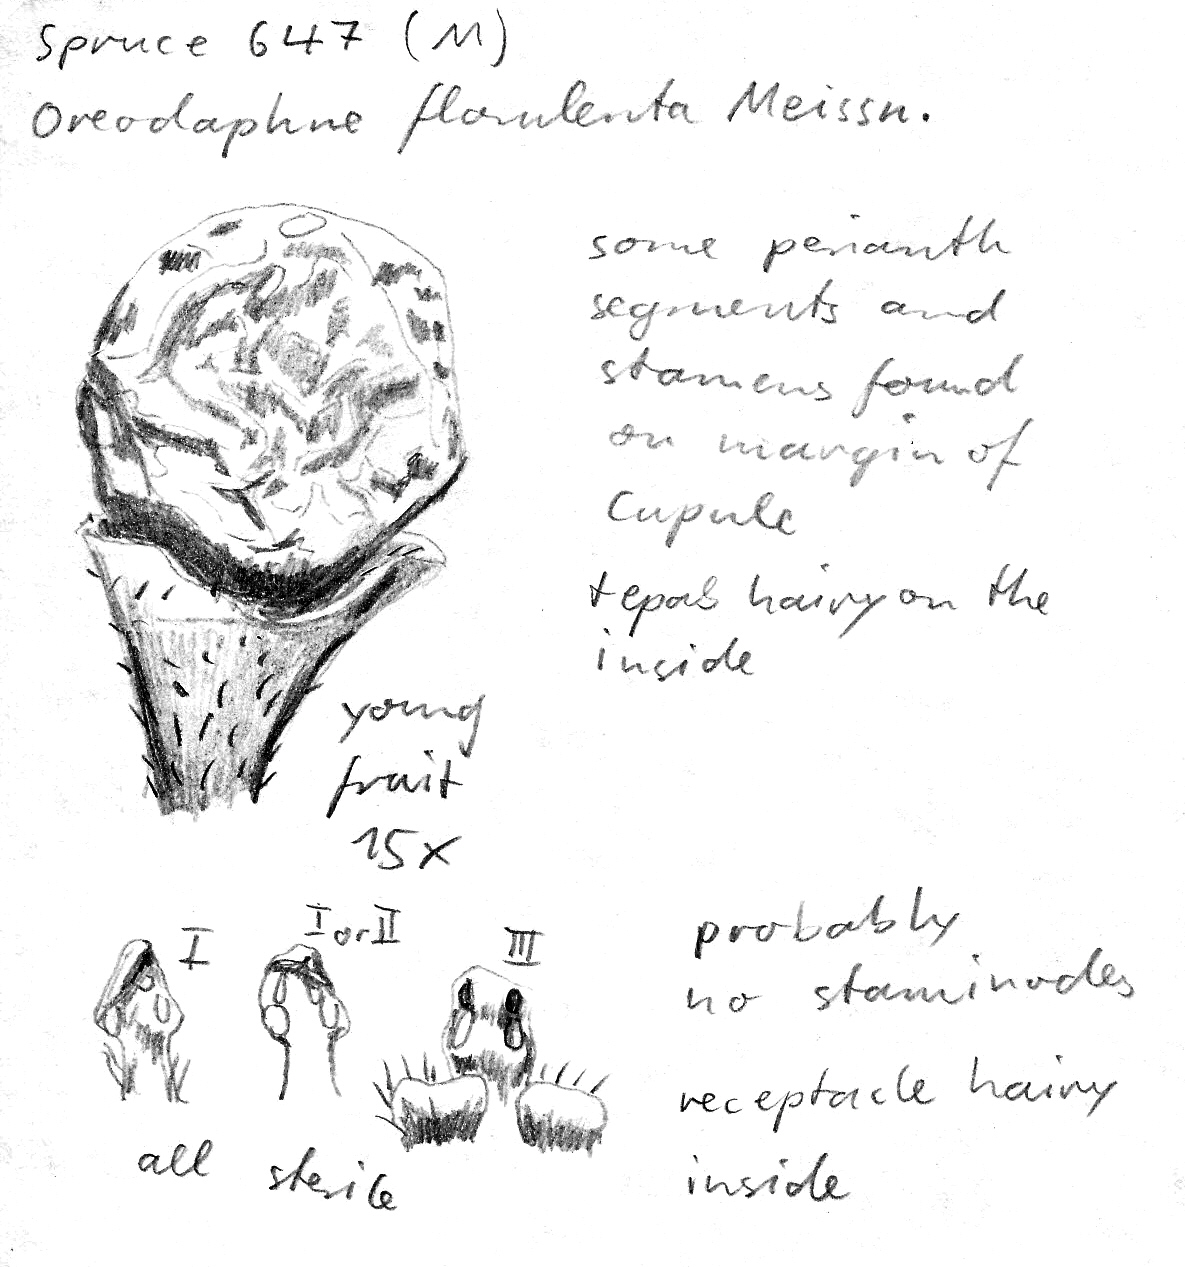 Spruce 647 (M)
Oreodaphne florulenta Meissn.
some perianth
segments and
stamens found
on margin of
cupule
tepals hairy on the
inside
young
fruit
15x
I
I or II
III
all sterile
probably
no staminodes
receptacle hairy
inside